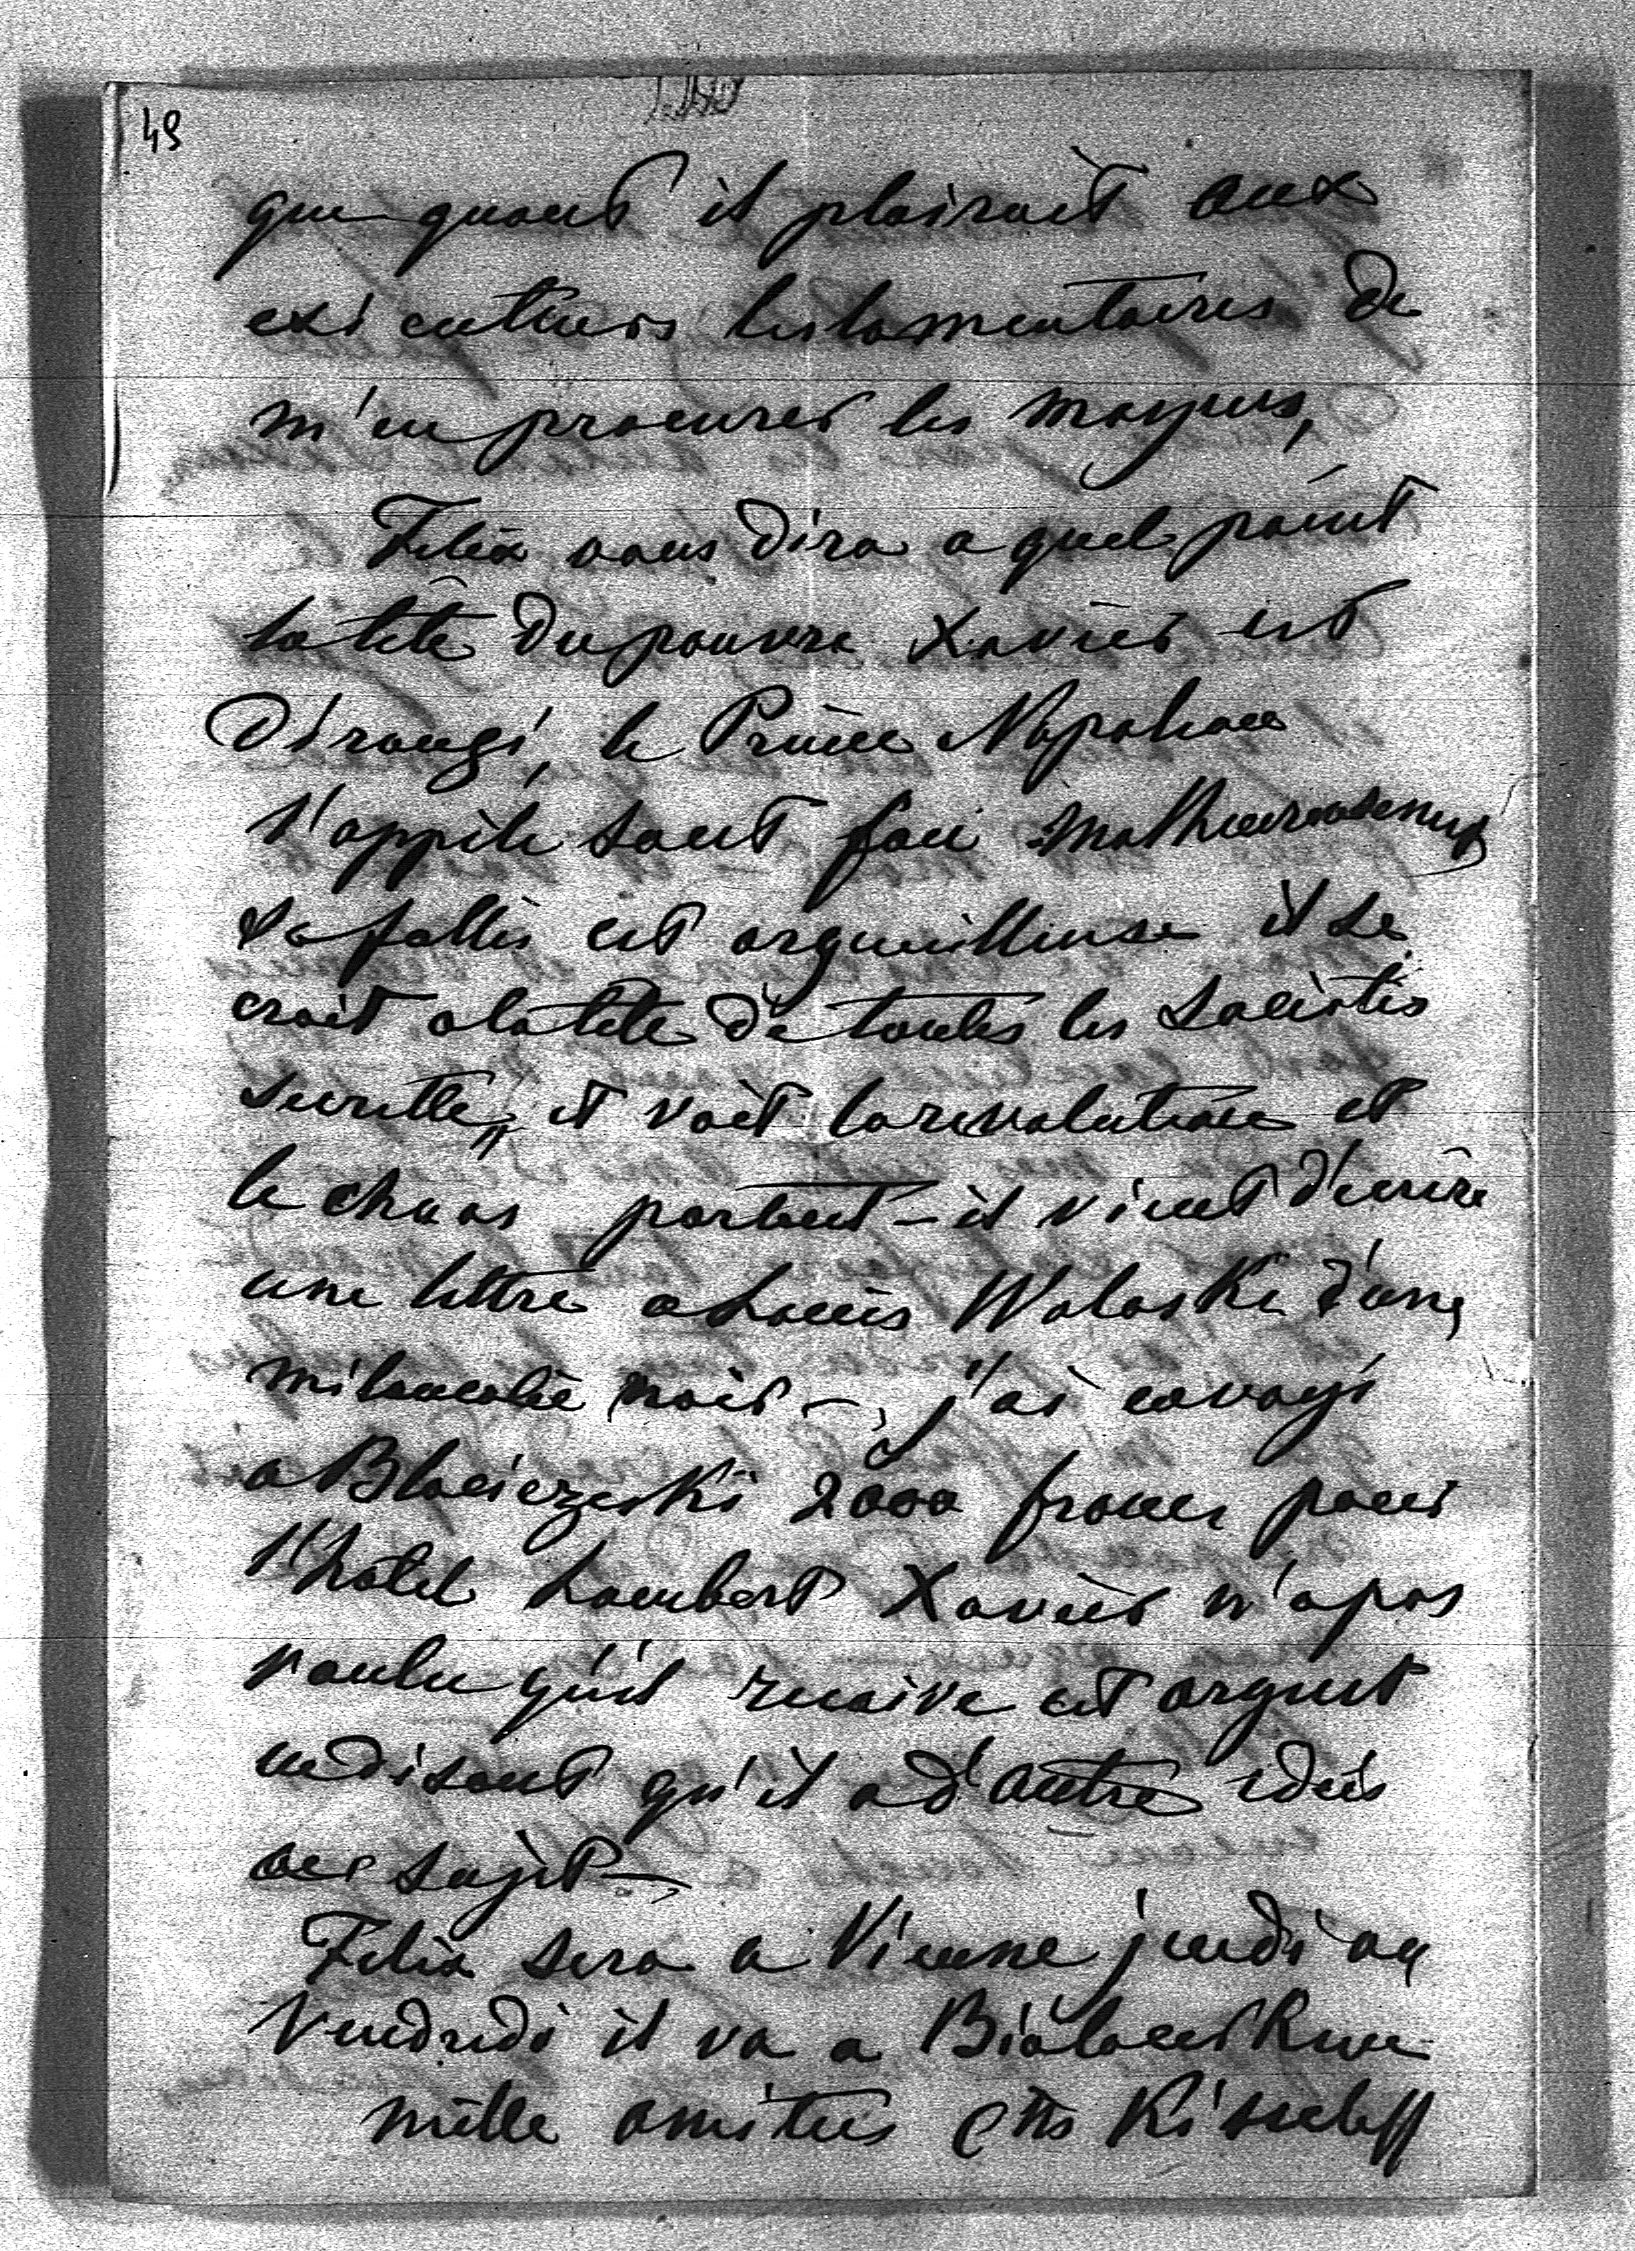 49
que quant il plairait aux
exécuteurs testamentaires de
m'en procurer les moyens,
Felix vous dira a quel point
la tête du pauvre Xavier est
dérangé, le Prince Napoleon
l'appéle tout fou malheureusement
sa follie est orgueilleuse il se
croit a la tete de toutes les Sociétés
secrette, il voit la revolution et
le chaos partout – il vient d'ecrire
une lettre a Louis Woloski d'une
mélancolie noir – j'ai envoyé
a 2000 francs pour
l'hôtel Lambert Xavier n'a pas
voulu qu'il recoive cet argent
en disant qu'il a d'autre idéés
a ce sujet –
Felix sera a Vienne jeudi ou
Vendredi il va a
mille amitiés Ctts Kisseleff